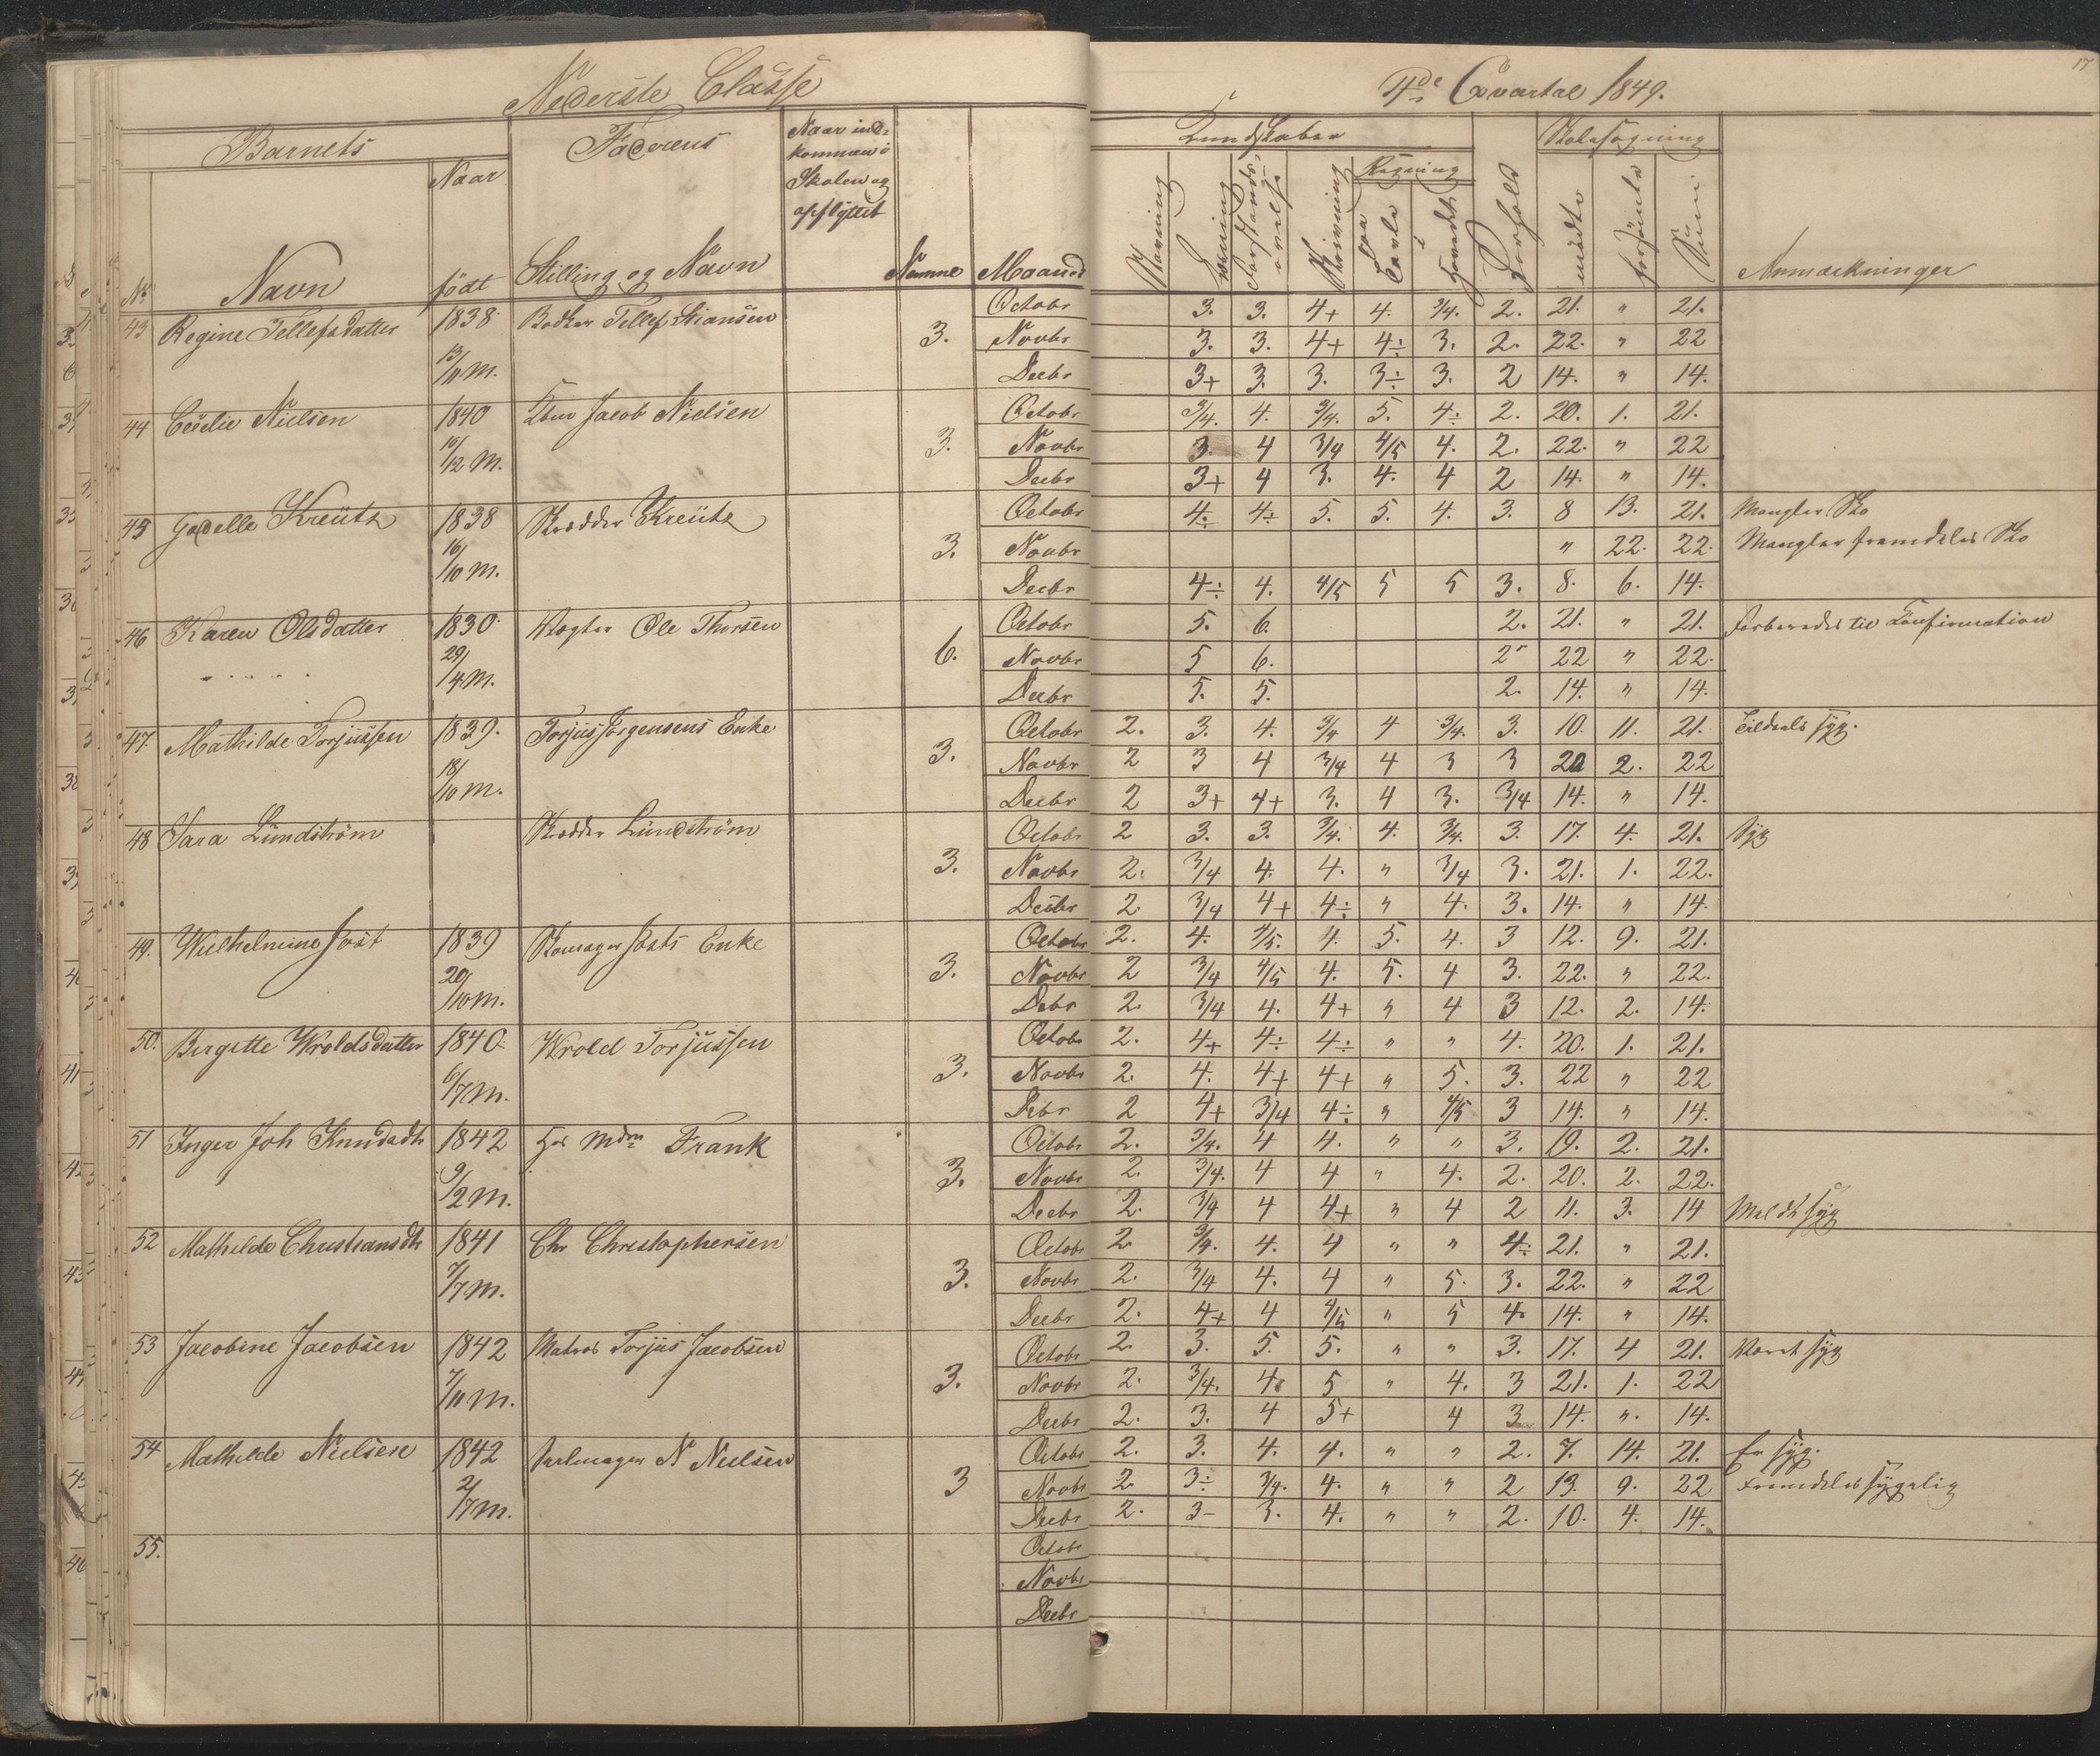 Nederste Classe
4de Qvartal 1849.
17
Barnets
Faderens
Naar ind-
kommen i
Skolen og
opflyttet
Kundskaber
Skolesøgning
Naar
Regning
No
Navn
født
Stilling og Navn
Numne
Maaned
Stavning
Læsning
Forstands-
øvelse
Skrivning
paa Tavle
i Hovedet
Forhold
mødte
forsömte
Sum
Anmærkninger
43 Regine Tellefsdatter 1838 Bødker Tellef Stiansen 3. Octobr 3. 3. 4+ 4. 3/4. 2. 21. " 21.
13/11 M. Novbr 3. 3. 4+ 4÷ 3. 2. 22. " 22
Decbr 3+ 3. 3. 3÷ 3. 2 14. " 14.
44 Cecelie Nielsen 1840 Jacob Nielsen 3. Octobr 3/4. 4. 3/4. 5. 4÷ 2. 20. 1. 21.
/12 M. Novbr 3. 4 3/4 4/5 4. 2. 22. " 22
Decbr 3+ 4 3. 4. 4 2 14. " 14.
45 Kreütz 1838 Skrædder Kreütz 3. Octobr 4÷ 4÷ 5. 5. 4. 3. 8 13. 21. Mangler Sko
16/10 M. Novbr " 22. 22. Mangler fremdeles Sko
Decbr 4÷ 4. 4/5 5 5 3. 8. 6. 14.
46 Karen Olsdatter 1830 Vægter Ole Thorsen 6. Octobr 5. 6. 2. 21. " 21. forberedes til Confirmation
29/4 M. Novbr 5 6. 2 22 " 22.
Decbr 5. 5. 2. 14. " 14.
47. Mathilde Torjüssen 1839. Torjus Jørgensens Enke 3. Octobr 2. 3. 4. 3/4 4 3/4. 3. 10. 11. 21. tildeels syg.
18/10 M. Novbr 2 3 4 3/4 4 3 3 20 2. 22
Decbr 2 3+ 4+ 3. 4 3. 3/4 14. " 14.
48 Sara Lündström Skrædder Lündström 3. Octobr 2 3. 3. 3/4. 4. 3/4. 3. 17. 4. 21. Syg
Novbr 2. 3/4 4. 4. " 3/4 3. 21. 1. 22.
Decbr 2 3/4 4+ 4÷ " 4. 3. 14. " 14.
49. Wilhelmine Jost 1839 Skomager Josts Enke 3. Octobr 2. 4. 4/5. 4. 5. 4. 3 12. 9. 21.
20/10 M. Novbr 2 3/4 4/5 4. 5. 4 3. 22. " 22.
Debr 2. 3/4 4. 4+ " 4 3 12. 2. 14.
50. Birgitte Wroldsdatter 1840. Wrold Torjüssen 3. Octobr 2. 4+ 4÷ 4÷ " " 4. 20. 1. 21.
6/7 M. Novbr 2. 4. 4+ 4+ " 5. 3. 22 " 22
Debr 2 4+ 3/4 4÷ " 4/5 3 14. " 14.
51 Inger Joh Knudsdtr 1842 hos Mdm Frank 3. Octobr 2. 3/4. 4 4. " " 3. 19. 2. 21.
9/2 M. Novbr 2. 3/4. 4 4 " 4. 2. 20. 2. 22.
Decbr 2. 3/4 4 4+ " 4 2 11. 3. 14 Meldt syg
52 Mathilde Christiansdtr 1841 Chr Christophersen 3. Octobr 2 3/4. 4. 4 " " 4÷ 21. " 21.
7/7 M. Novbr 2. 3/4 4. 4 " 5. 3. 22. " 22
Decbr 2. 4+ 4 4/5 " 5 4. 14. " 14.
53 Jacobine Jacobsen 1842 Matros Torjus Jacobsen 3. Octobr 2. 3. 5. 5. " " 3. 17. 4 21. Været syg
7/11 M. Novbr 2. 3/4. 4. 5 " 4. 3 21. 1. 22
Decbr 2. 3. 4 5+ 4 3 14. ". 14.
54 Mathilde Nielsen 1842 N Nielsen 3 Octobr 2. 3. 4. 4. " " 2. 7. 14. 21. Er syg.
2/7 M. Novbr 2. 3÷ 3/4. 4. " " 2 13. 9. 22 Fremdeles sygelig
Decbr 2. 3- 3. 4. " " 2. 10. 4. 14.
55. Octobr
Novbr
Decbr